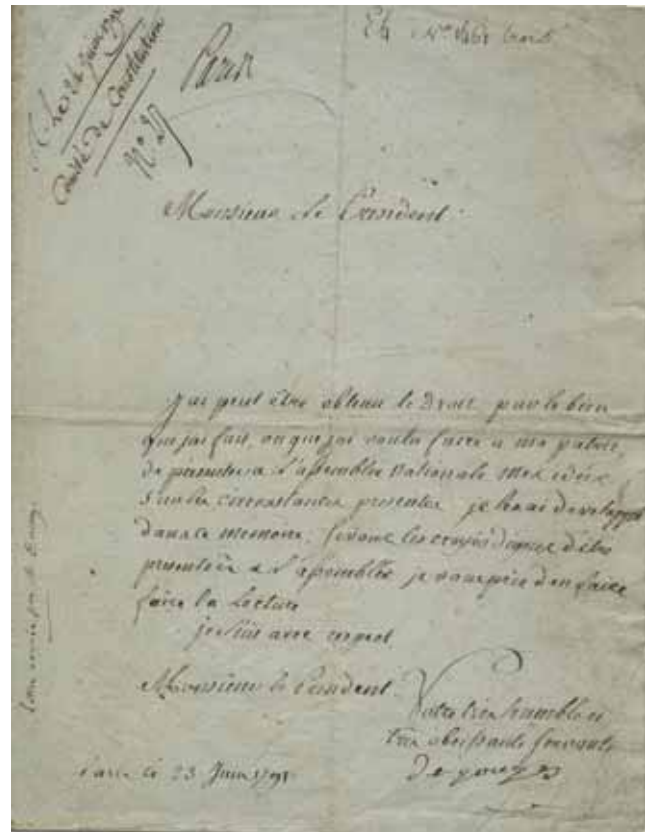 Paris
Comité de Constitution
Monsieur le Président
j'ai peut être obtenu le Droit par le bien
que j'ai fait, ou que j'ai voulu faire a ma patrie,
de presenter a l'assemblée nationale mes idées
sur les circonstances presentes je les ai developpé
dans ce memoire, si vous les croyés dignes d'être
presentées a l'assemblée je vous prie d'en faire
faire la Lecture
je suis avec respect
Monsieur le Président
Votre très humble et
très obeissante servante
de gouges
Paris ce 23 Juin 1791